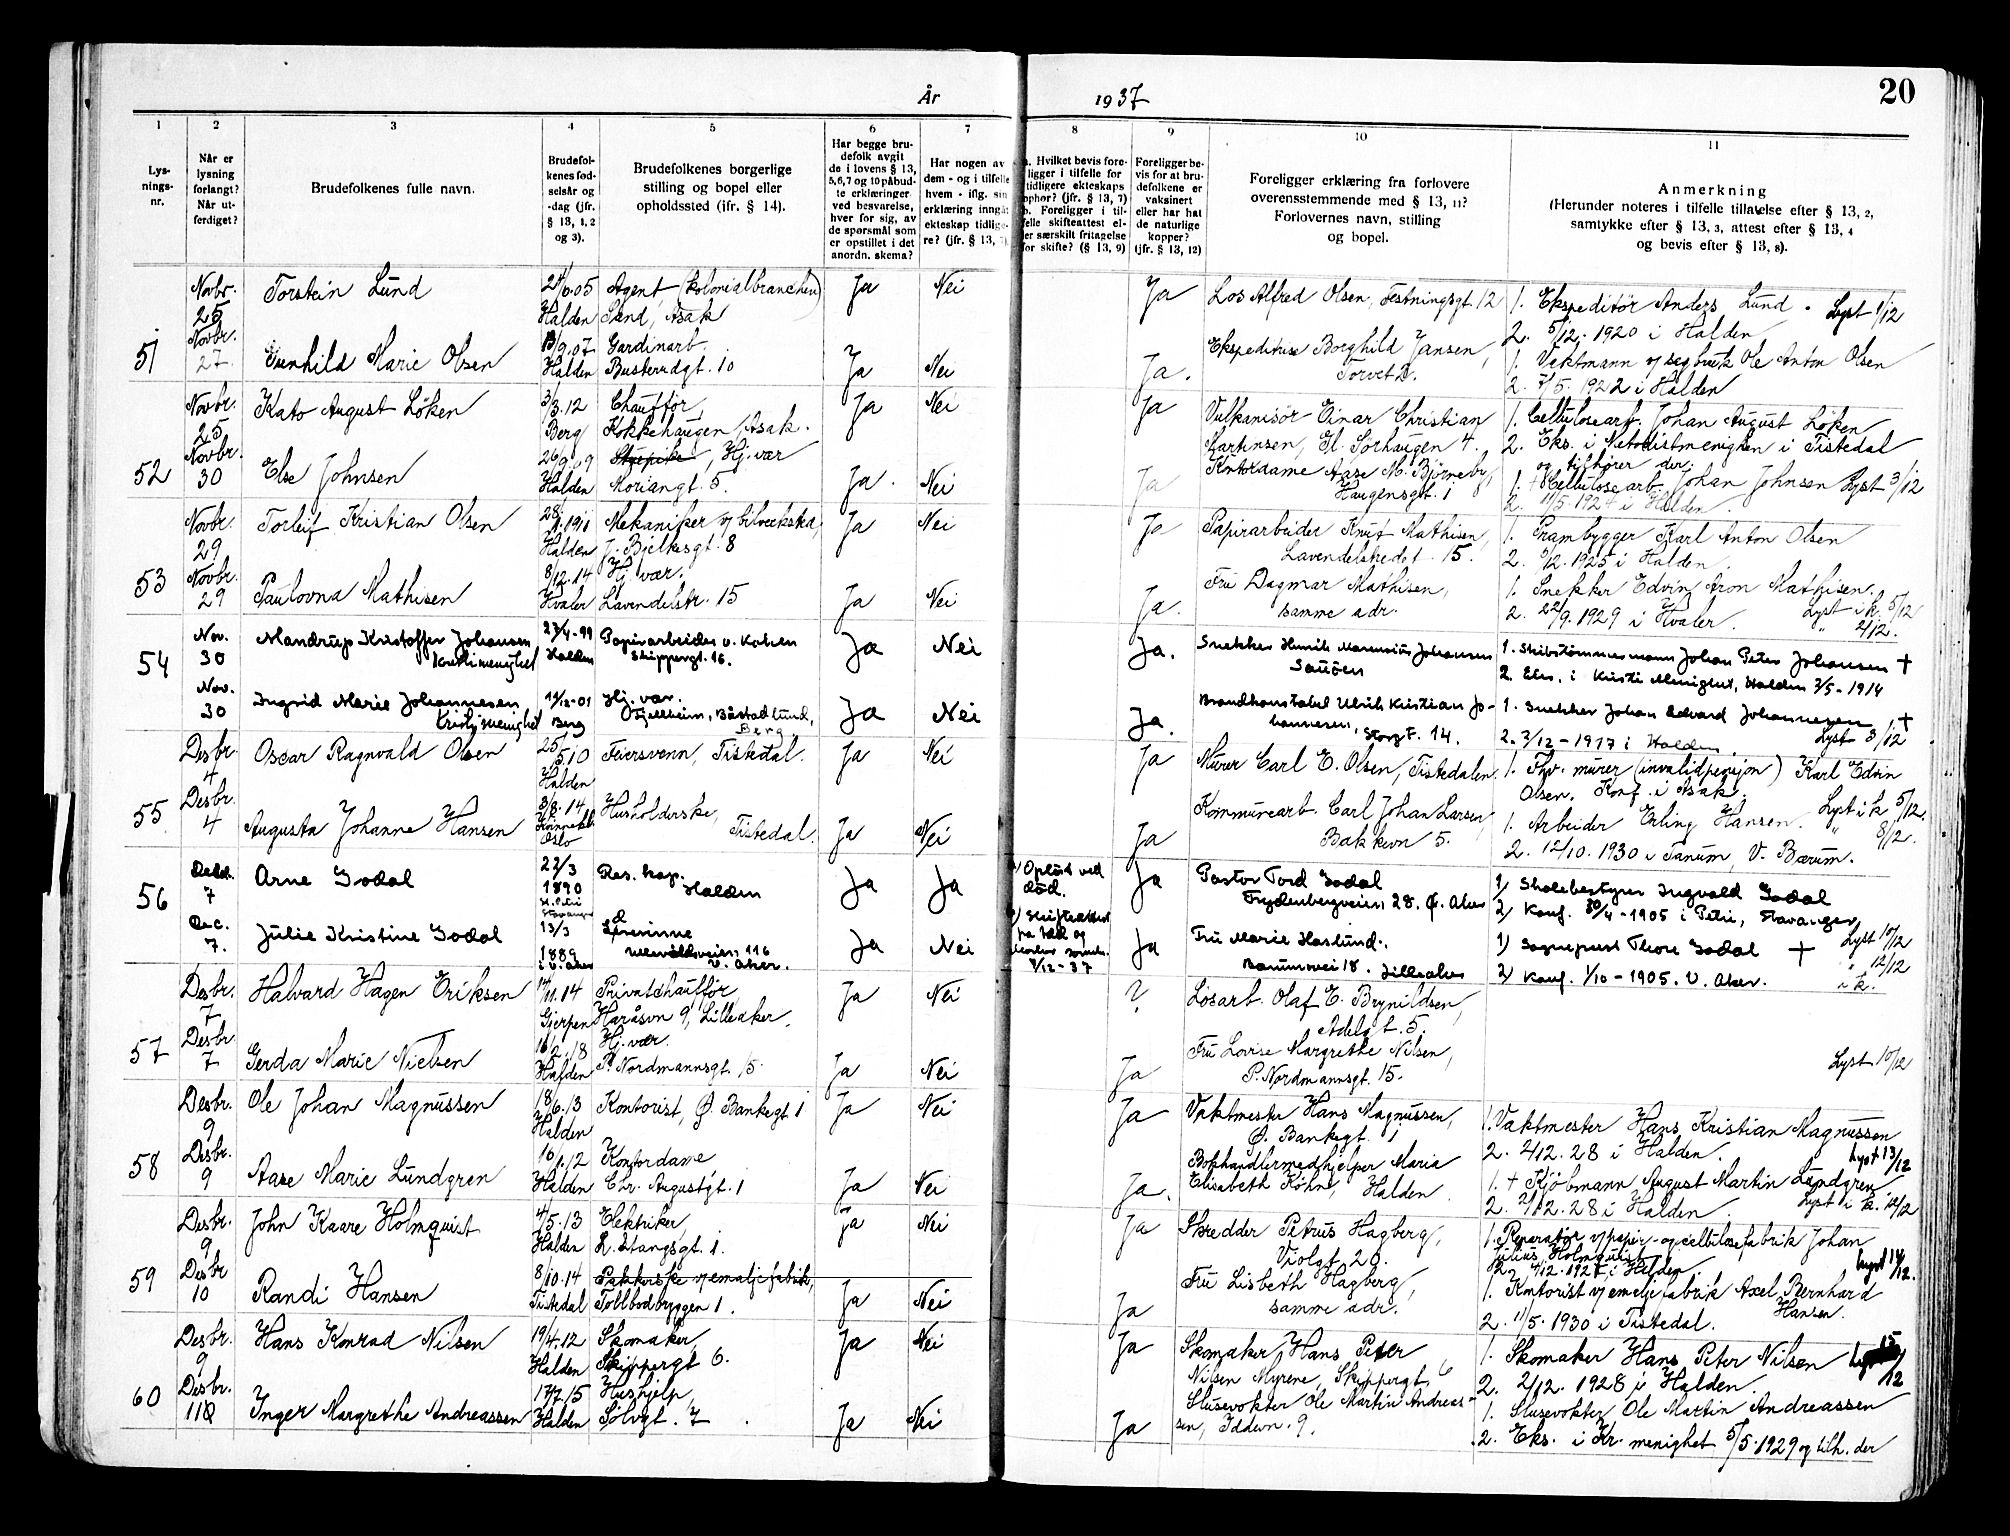 20
År 1937
1
Lysningsnr.
2
Når er lysning forlangt? Når utferdiget?
3
Brudefolkenes fulle navn.
4
Brudefolkenes fødselsår og -dag (jfr. § 13, 1, 2 og 3).
5
Brudefolkenes borgerlige stilling og bopel eller opholdssted (ifr. § 14).
6
Har begge brudefolk avgit de i lovens § 13, 5, 6, 7 og 10 påbudte erklæringer ved besvarelse, hver for sig, av de spørsmål som er opstillet i det anordn. skema?
7
Har nogen av dem - og i tilfelle hvem - iflg. sin erklæring inngåt ekteskap tidligere? (jfr. § 13, 7)
8
a. Hvilket bevis foreligger i tilfelle for tidligere ekteskaps ophør? (jfr. § 13, 7) b. Foreligger i tilfelle skifteattest eller særskilt fritagelse for skifte? (§ 13, 9)
9
Foreligger bevis for at brudefolkene er vaksinert eller har hat de naturlige kopper? (jfr. § 13, 12)
10
Foreligger erklæring fra forlovere overensstemmende med § 13, 11? Forlovernes navn, stilling og bopel.
11
Anmerkning
(Herunder noteres i tilfelle tillatelse efter § 13, 2, samtykke efter § 13, 3, attest efter § 13, 4 og bevis efter § 13, 8).
51
Novbr. 25 Torstein Lund Halden Agent (kolonialbranchen) Ja Nei Ja Los Alfred Olsen, Festningsgt. 12 1. Ekspeditør Anders Lund. Lyst 1/12
Sand, Asak 2. 5/12. 1920 i Halden
Novbr. 27 Gunhild Marie Olsen 13/9.07 Halden Gardinarb. Ja Nei Ja. Ekspeditrise Borghild Jansen, 1. Vaktmann v/ segbruk Ole Anton Olsen
Busterudgt. 10 Torvet 2. 7/5. 1922 i Halden
52
Novbr. 25 Kato August Løken 3/3.12 Berg Chauffør, Ja Nei Ja Vulkanisør Einar Christian 1. Cellulosearb. Johan August Løken
Kokkehaugen, Asak. Martinsen, Gl. Sørhaugen 4. 2. Eks. i Metodistmenigheten i Tistedal
og tilhører der.
Novbr. 30 Else Johnsen 26/9.09 Halden Hj. vær Ja. Nei Ja Kntordame Aase M. Bjørneby, 1. + Cellulosearb. Johan Johnsen Lyst 3/12
Moriangt. 5. Haugensgt. 1 2. 11/5. 1924 i Halden.
53
Novbr. 29 Torleif Kristian Olsen Halden Mekaniker v/ bilverksted, Ja Nei Ja Papirarbeider Knut Mathisen, 1. Prambygger Karl Anton Olsen
J. Bjelkesgt. 8 Lavendelstredet 15. 2. 6/12. 1925 i Halden.
Novbr. 29 Paulovna Mathisen 8/12.14 Hvaler Hj. vær. Ja Nei Ja. Fru Dagmar Mathisen, 1. Snekker Edvin Aron Mathisen.
Lavendelstr. 15 samme adr. 2. 22/9. 1929 i Hvaler. Lyst i k. 5/12
" 2/12.
54
Nov. 30 Mandrup Kristoffer Johansen 27/4-99 Halden Papirarbeider v. Ja Nei Ja. Snekker Henrik Johansen 1. Skibstømmermann Johan Peter Johansen +
Kristi menighet Skippergt. 16. Sauøen 2. Eks. i Kristi Menighet, Halden 3/5-1914
Nov. 30 Ingrid Marie Johannesen Berg Hj. vær. Ja Nei Ja. Brandkonstabel Ulrik Kristian Jo- 1. Snekker Johan Edvard Johannesen +
Kristi menighet Fjellheim, Båstadlund, Berg hannesen, Storgt. 14. 2. 3/12-1917 i Halden. Lyst 3/12
55
Desbr. 4 Oscar Ragnvald Olsen 25/5.10 Halden Feiersvenn, Tistedal. Ja Nei Ja Murer Carl E. Olsen, Tistedalen. 1. Fhv. murer (invalidpensjon) Karl Edvin
Olsen. Konf. i Asak.
Desbr. 4 Augusta Johanne Hansen 3/8.14 Oslo Husholderske, Tistedal. Ja Nei Ja Kommunearb. Carl Johan Larsen, 1. Arbeider Erling Hansen. Lyst i k. 5/12.
Bakkevn 5. 2. 12/10. 1930 i Tanum, V. Bærum. " 8/12.
56
7 Arne Godal 22/3 1890 St. Petri Stavanger Res. kap. Halden Ja Ja Opløst ved død. Ja Pastor Tord Godal 1) Skolebestyrer Ingvald Godal
Frydenbergveien 28. Ø. Aker 2) Konf. 30/4-1905 i Petri, Stavanger
Dec. 7. Julie Kristine Godal 13/3 1889 i V. Aker Lærerinne Ja Nei 8/12-37 Ja Fru Marie Haslund. 1) Sogneprest Thore Godal + Lyst 10/12
Ullevålsveien 116 V. Aker. Bærumsvei 18. Lilleaker 2) Konf. 1/10-1905. V. Aker. " 12/12 i k.
57
Desbr. 7 Halvard Hagen Eriksen 14/11.14 Gjerpen Privatchauffør Ja Nei ? Løsarb. Olaf E. Brynildsen,
Haråsvn 9, Lilleaker. Adelgt. 5.
Desbr. 7 Gerda Marie Nielsen Halden Hj. vær. Ja Nei Ja Fru Lovise Margrethe Nilsen, Lyst 10/12
P. Nordmannsgt. 15. P. Nordmannsgt. 15.
58
Desbr. 9 Ole Johan Magnussen 18/6.13 Halden Kontorist, Ø. Bankegt 1 Ja Nei Ja Vaktmester Hans Magnussen, 1. Vaktmester Hans Kristian Magnussen
Ø. Bankegt. 1 2. 2/12. 28 i Halden. Lyst 13/12
Desbr. 9 Aase Marie Lundgren Halden Kontordame Ja Nei Ja. Bokhandlermedhjelper Maria 1. + Kjøbmann August Martin Lundgren
Chr. Augustsgt. 1 Elisabeth Köhn, Halden. 2. 2/12. 28 i Halden. Lyst i k. 12/12
59
Desbr. 9 John Kaare Holmquist 4/5.13 Halden Elektriker, Ja Nei Ja Skredder Petrus Hagberg, 1. Reparatør v/ papir- og cellulosefabrik Johan
R. Stangsgt. 1. Violgt. 20. Julius Holmquist.
2. 4/12. 1927 i Halden. Lyst 14/12.
Desbr 10 Randi Hansen 8/10.14 Tistedal Pakkerske v/ emaljefabrik, Ja Nei Ja Fru Lisbeth Hagberg, 1. Kntorist v/ emaljefabrik Axel Bernhard
Tollbodbryggen 1. samme adr. 2. 11/5. 1930 i Tistedal. Hansen.
60
Desbr. 9 Hans Konrad Nilsen 19/4.12 Halden Skomaker, Ja Nei Ja Skomaker Hans Peter 1. Skomaker Hans Peter Nilsen Lyst 15/12
Skippergt 6. Nilsen Myrene, Skippergt. 6 2. 2/12. 1928 i Halden.
Desbr. Inger Margrethe Andreassen 17/7.15 Halden Hushjelp, Ja Nei Ja Slusevokter Ole Martin Andreas- 1. Slusevokter Ole Martin Andreassen
Sølvgt. 7. sen, Iddevn. 9. 2. Eks. i Kr. menighet 5/5. 1929 og tilh. der